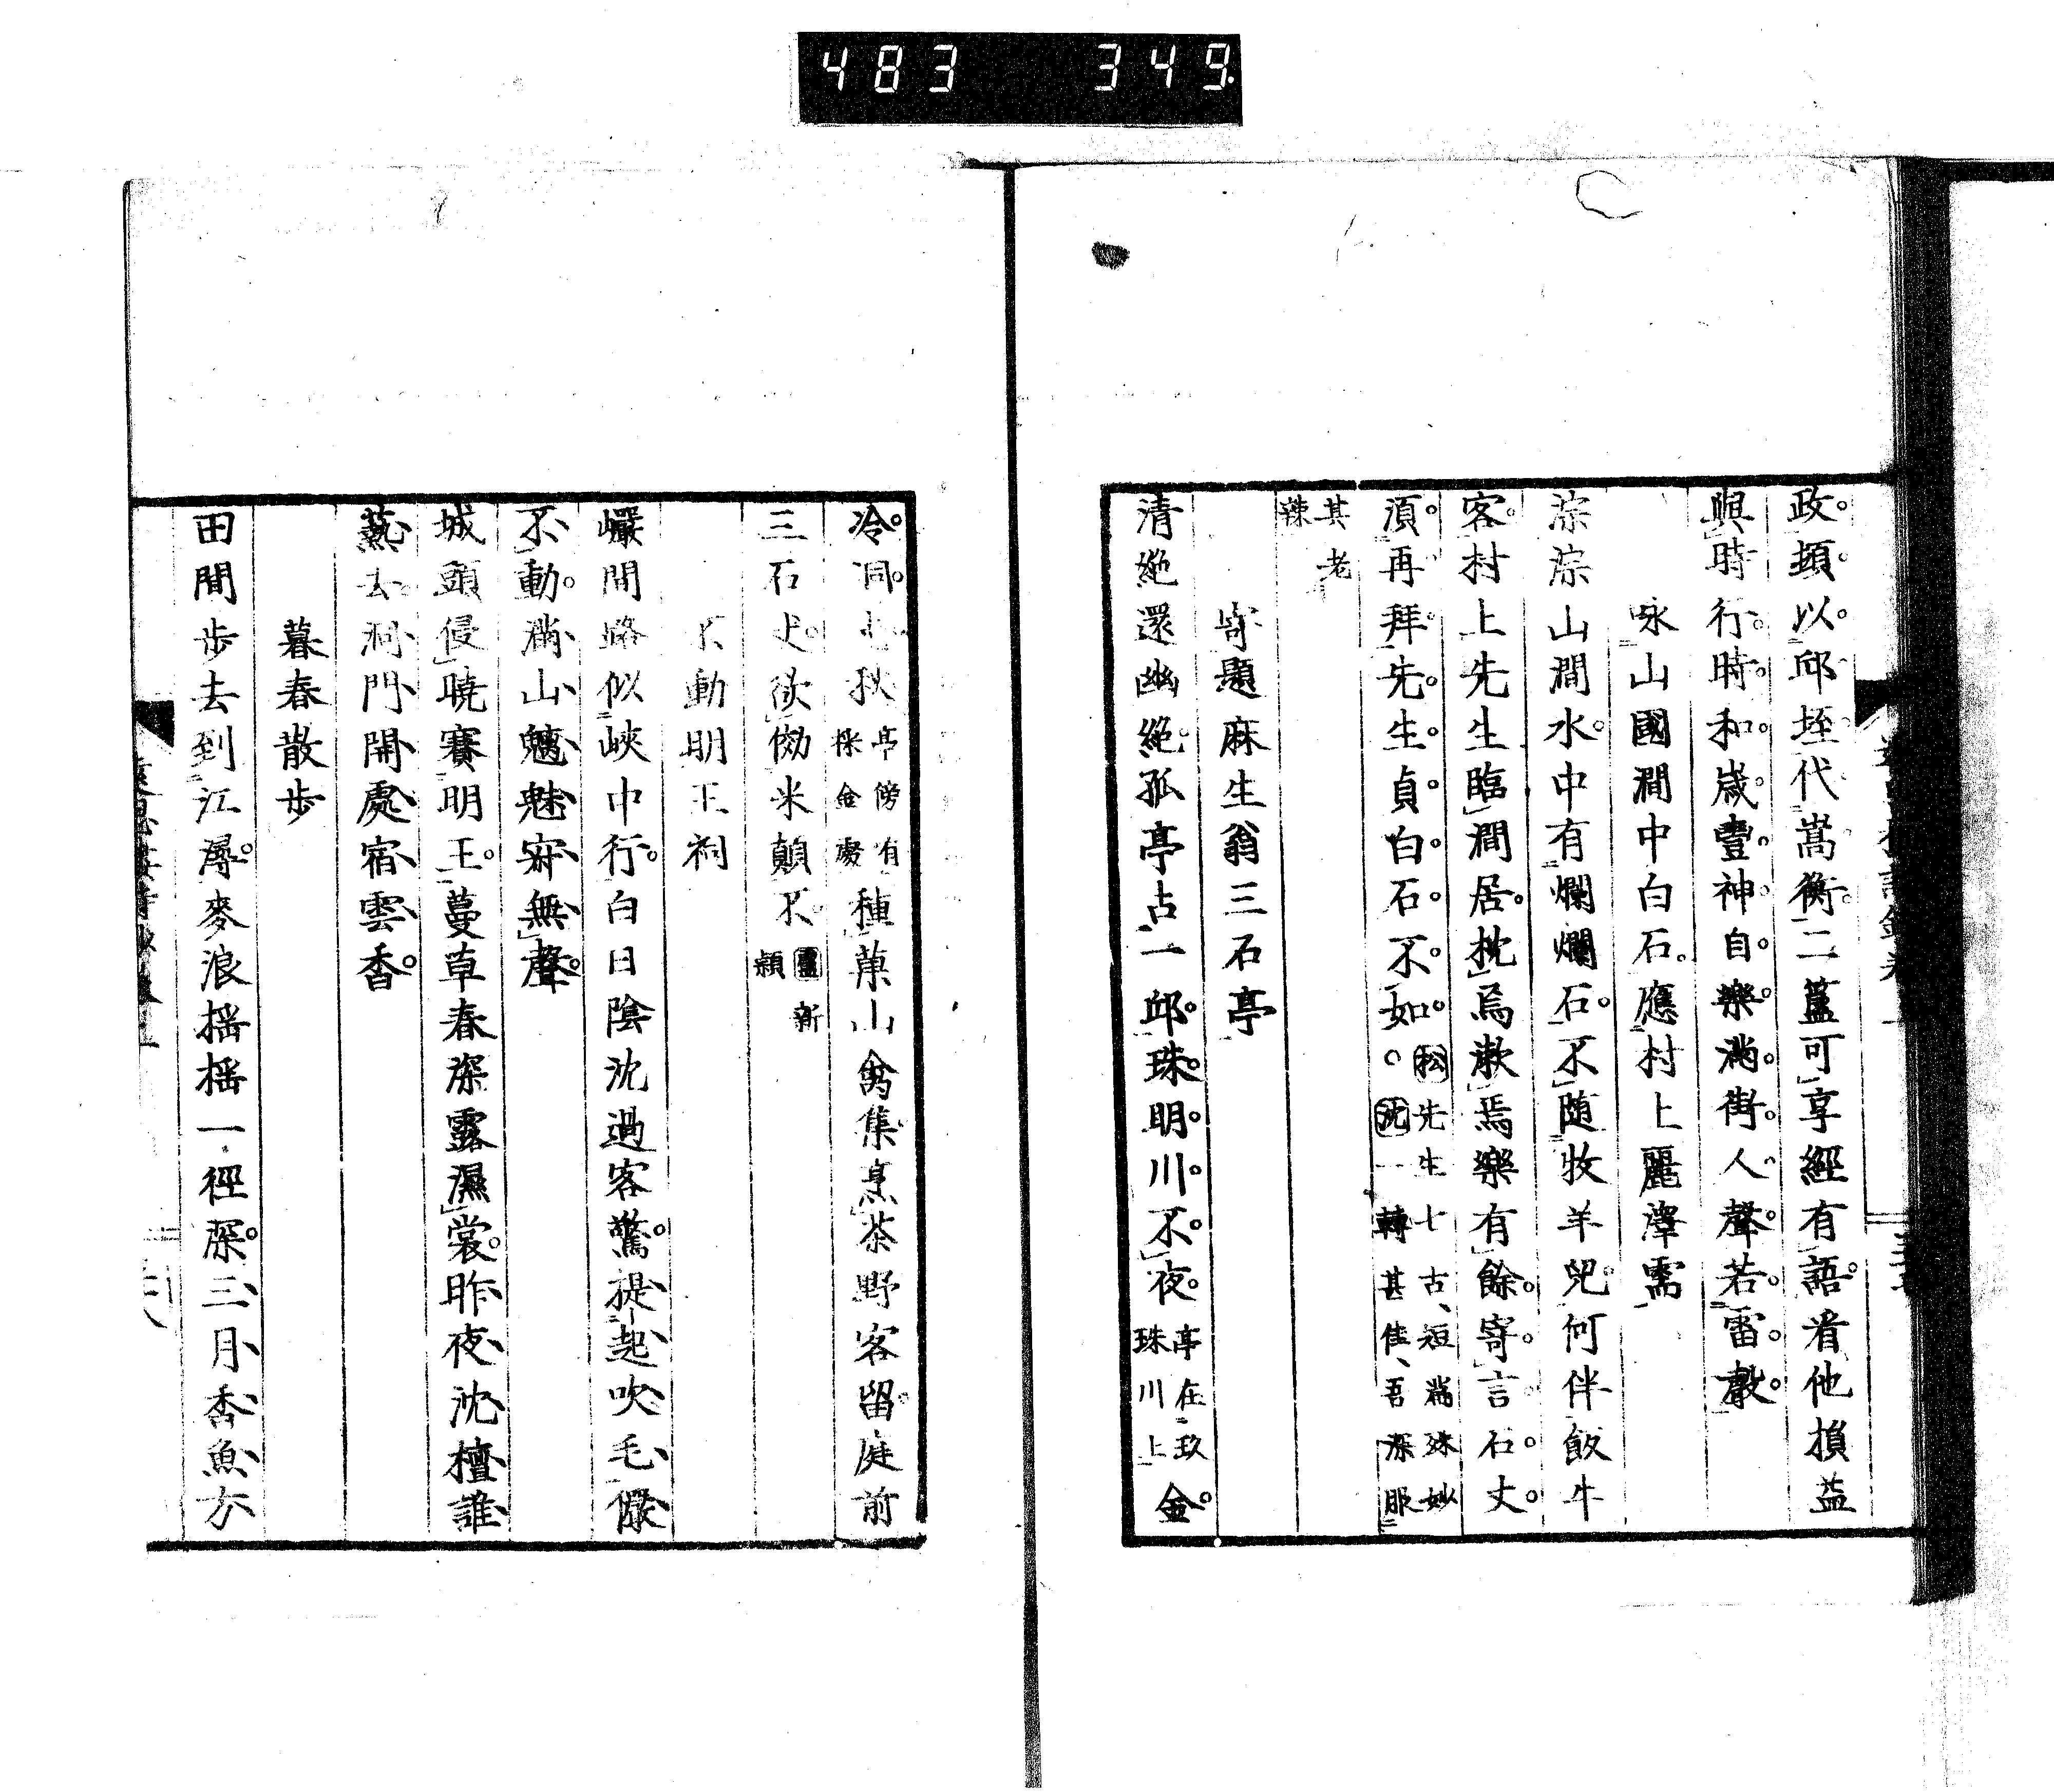 483 349
政損以邱垤代嵩衡二簋可享經有語看他損益
與時行時和歲豐神自樂滿街人聲若雷轂
咏山國澗中白石應村上麗澤需
淙淙山澗水中有爛爛石不随牧羊兒何伴飯牛
客村上先生臨澗居枕焉漱焉樂有餘寄言石丈
湏再拜先生貞白石不如 松先生七古短篇殊妙
沈一轉甚佳吾深服
其老
辣
寄題麻生翁三石亭
清絶還幽絶孤亭占一邱珠明川不夜 亭在玖
珠川上 金
冷洞 秋 亭傍有
採金處 種菓山禽集烹茶野客留庭前
三石丈欲傚米顛不 靈新
頴
不動明王祠
巖間路似峽中行白日陰沈過客驚提起吹毛儼
不動滿山魑魅寂無聲
城頭侵曉賽明王蔓草春深露濕裳昨夜沈檀誰
爇去祠門開處宿雲香
暮春散步
田間步去到江潯麥浪揺揺一徑深三月香魚方